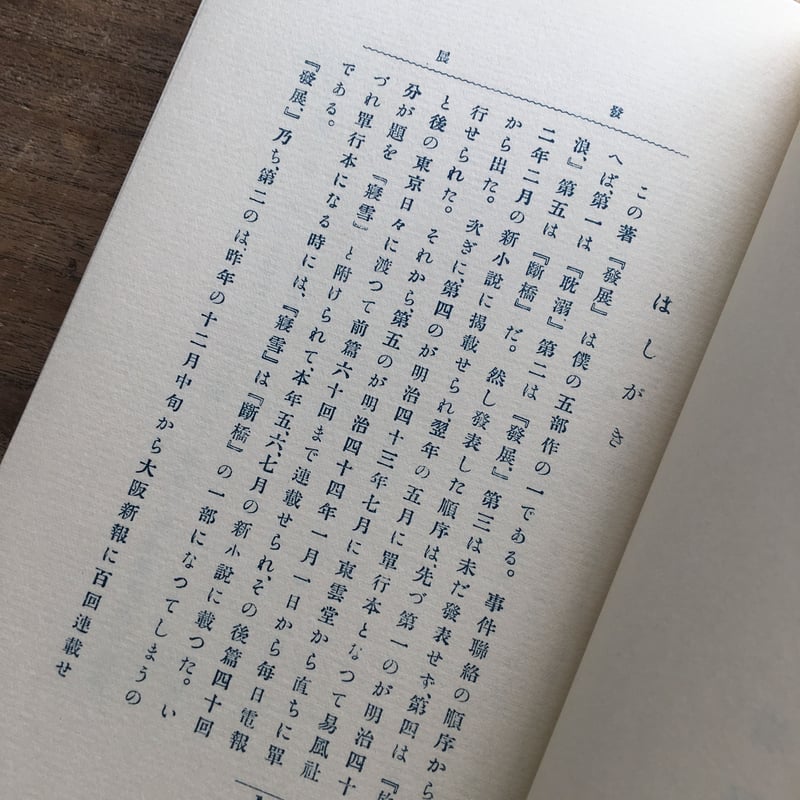 發展
はしがき
この著『發展』は僕の五部作の一である。事件聯絡の順序から
へば、第一は『耽溺』第二は『發展、』第三は未だ發表せず、第四は『
浪、』第五は『斷橋』だ。然し發表した順序は、先づ第一のが明治四十
二年二月の新小説に掲載せられ、翌年の五月に單行本となつて易風社
から出た。次ぎに、第四のが明治四十三年七月に東雲堂から直ちに單
行せられた。それから、第五のが明治四十四年一月一日から毎日電報
と後の東京日々に渡つて前篇六十回まで連載せられ、その後篇四十回
分が題を『寢雪』と附けられて、本年五、六、七月の新小説に載つた。い
づれ單行本になる時には、『寢雪』は『斷橋』の一部になつてしまうの
である。
『發展、』乃ち、第二のは、昨年の十二月中旬から大阪新報に百回連載せ